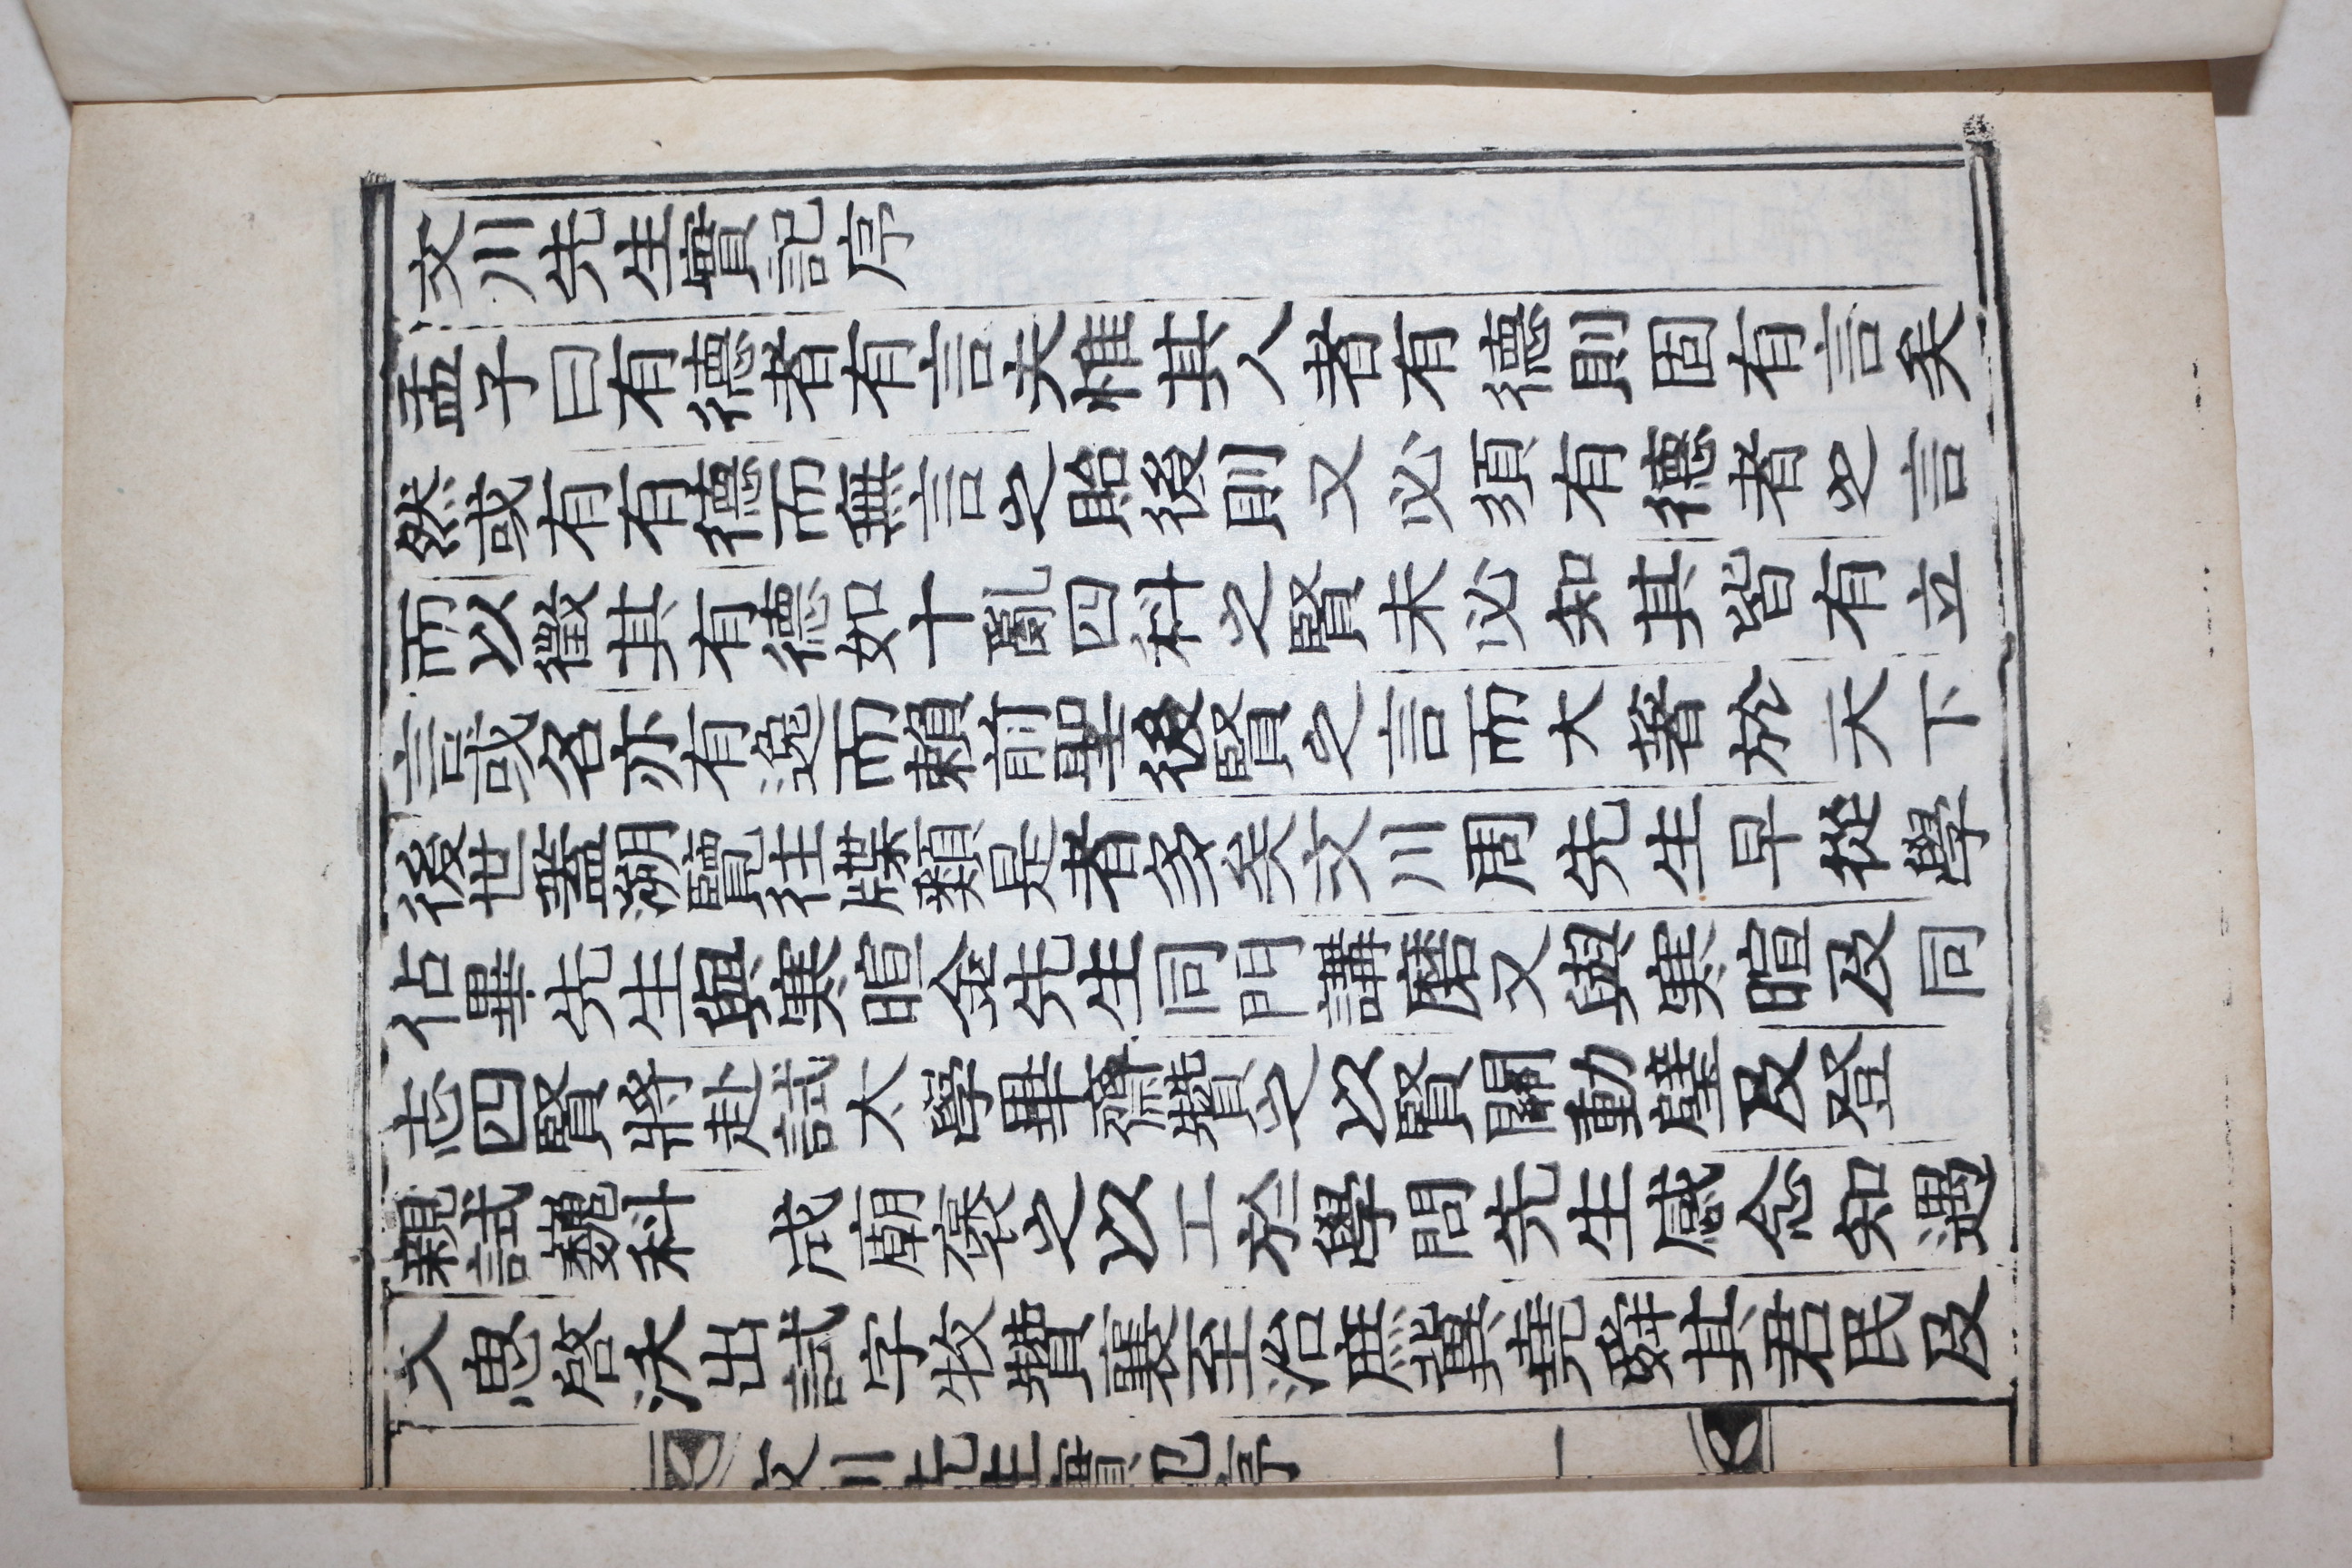 文川先生實記序
孟子曰有德者有言夫惟其人者有德則固有言矣
然或有有德而無言之貽後則又必須有德者之言
而以徵其有德如十亂四科之賢未必知其皆有立
言或名亦有逸而賴前聖後賢之言而大著於天下
後世蓋溯覽往牒類是者多矣文川周先生早從學
佔畢先生與寒暄金先生同門講磨又與寒暄及同
志四賢將赴試太學畢齋贊之以賢關動壁及登
親試魏科 成廟褒之以工於學問先生感念知遇
久思啓沃出試字牧贊襄至治庶冀堯舜其君民及
文川先生實記序 一